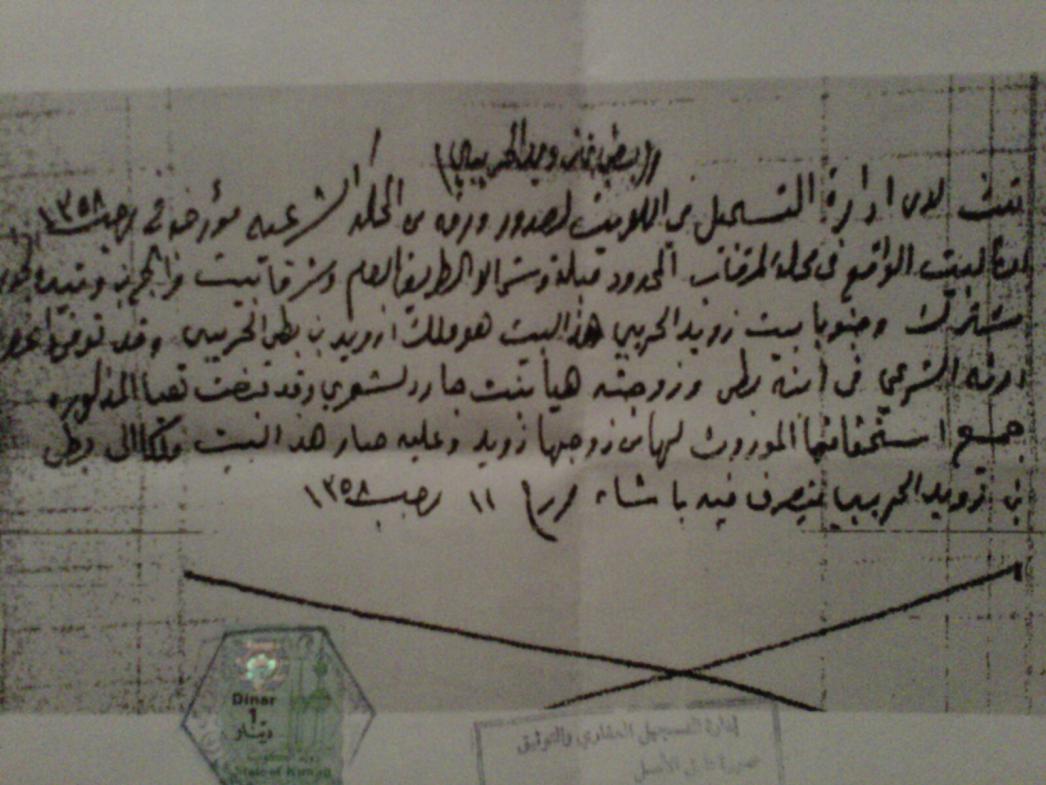 ثبت لدى ادارة التسجيل في الكويت لصدور ورقه من المحكمة الشرعيه مؤرخه في رجب ١٣٥٨
البيت الواقع في محلة المرقاب المحدود قبلة وشمالا الطريق العام وشرقا بيت
مشترك وجنوبا بيت زويد الحريبي هذا البيت هو ملك زويد بن بطي الحريبي وقد توفى
ارثه الشرعي في ابنه بطي وزوجته هيا بنت جار وقد قبضت هيا المذكوره
جميع استحقاقها الموروث لها من زوجها زويد وعليه صار هذا البيت ملكا الى بطي
بن زويد الحريبي يتصرف فيه بما شاء حرر ١١ رجب ١٣٥٨
Dinar
1
دينار
State of Kuwait
إدارة التسجيل العقاري والتوثيق
صورة طبق الأصل